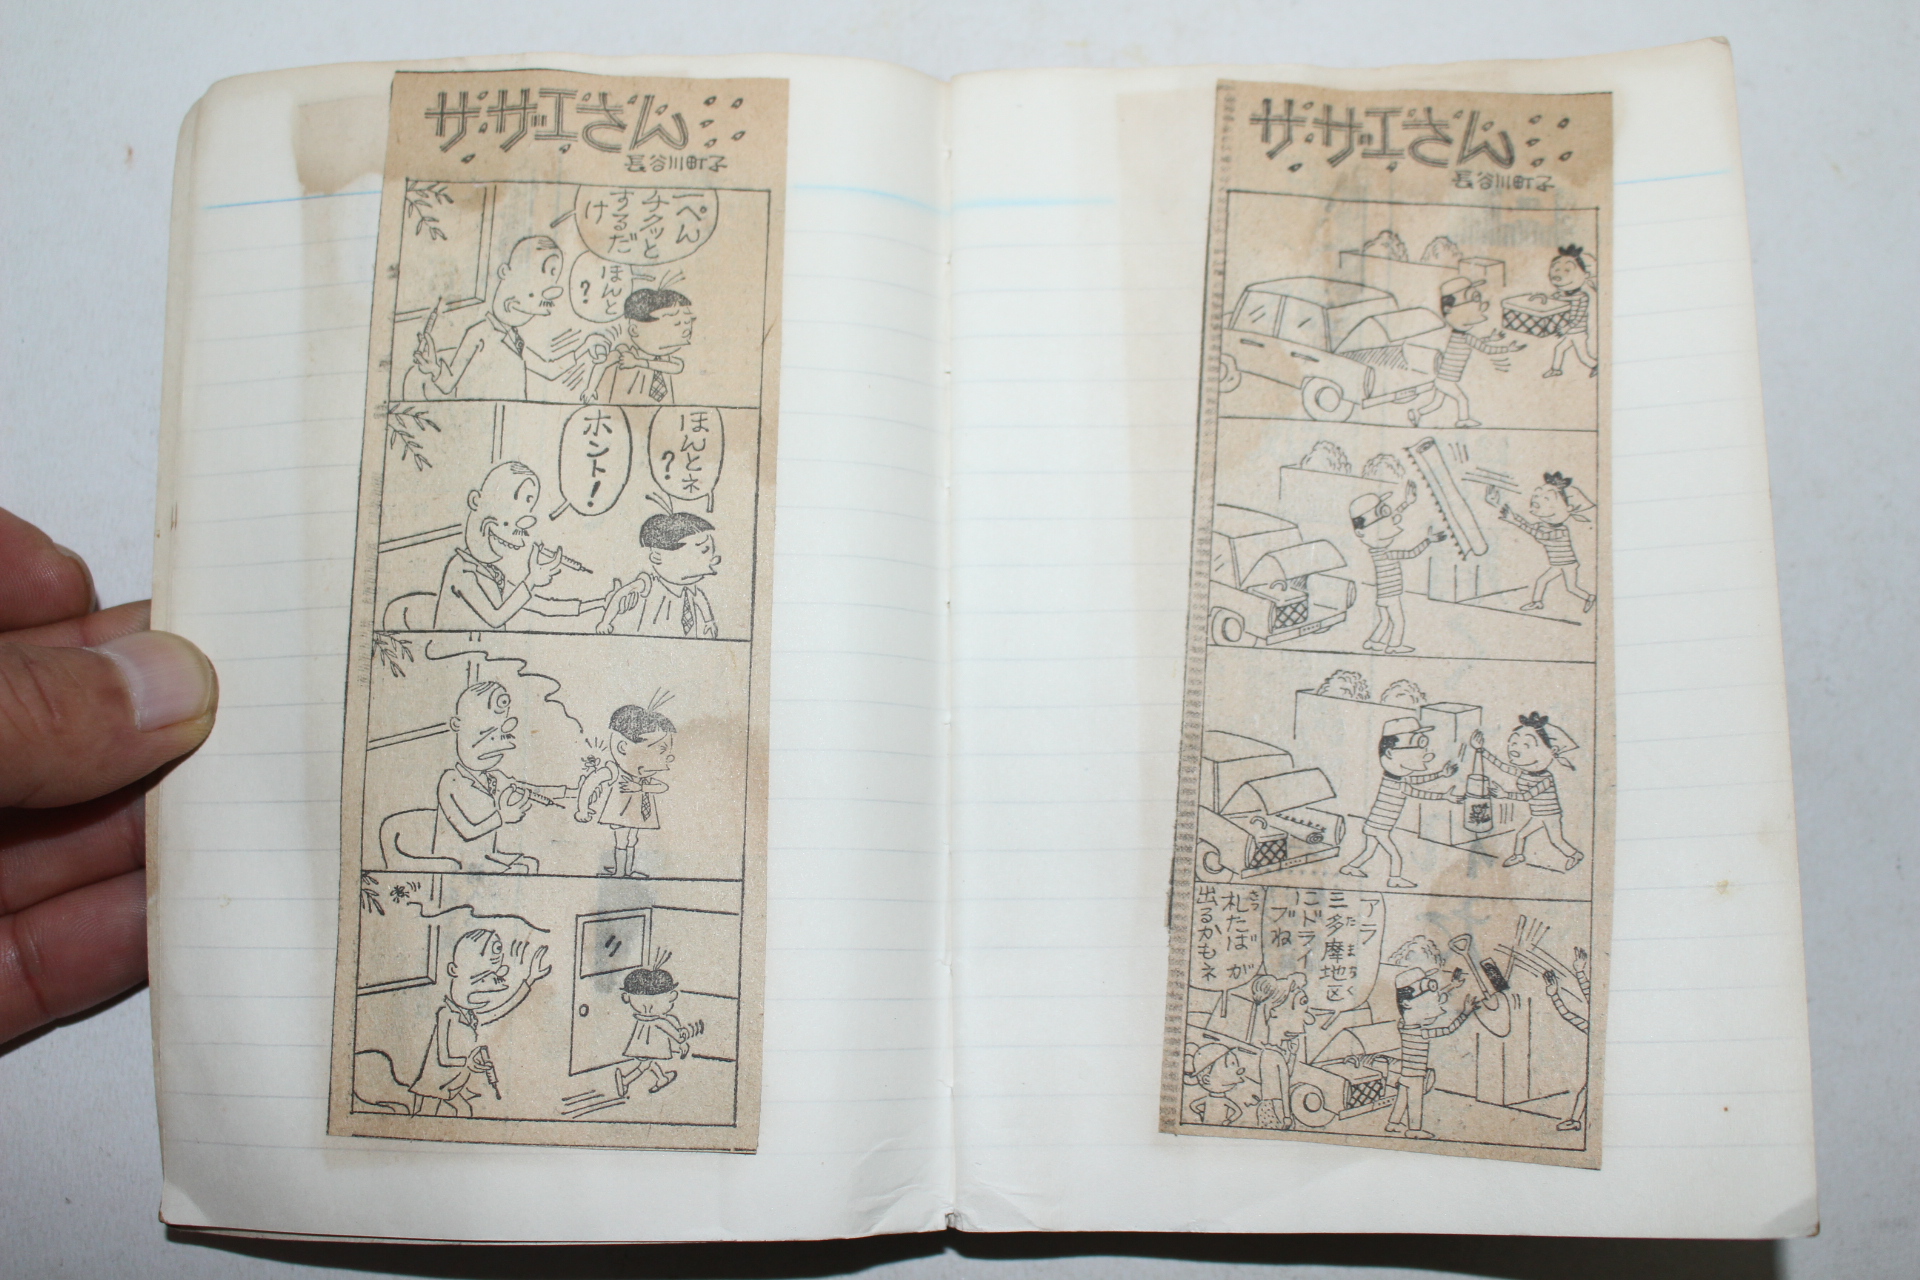 サザエさん
長谷川町子
一ぺん
チクッと
するだ
け
ほんと
?
ほんとネ
?
ホント!
サザエさん
長谷川町子
アラ
三多摩地区
たまちく
にドライ
ブね
札たばが
さつ
出るかもネ